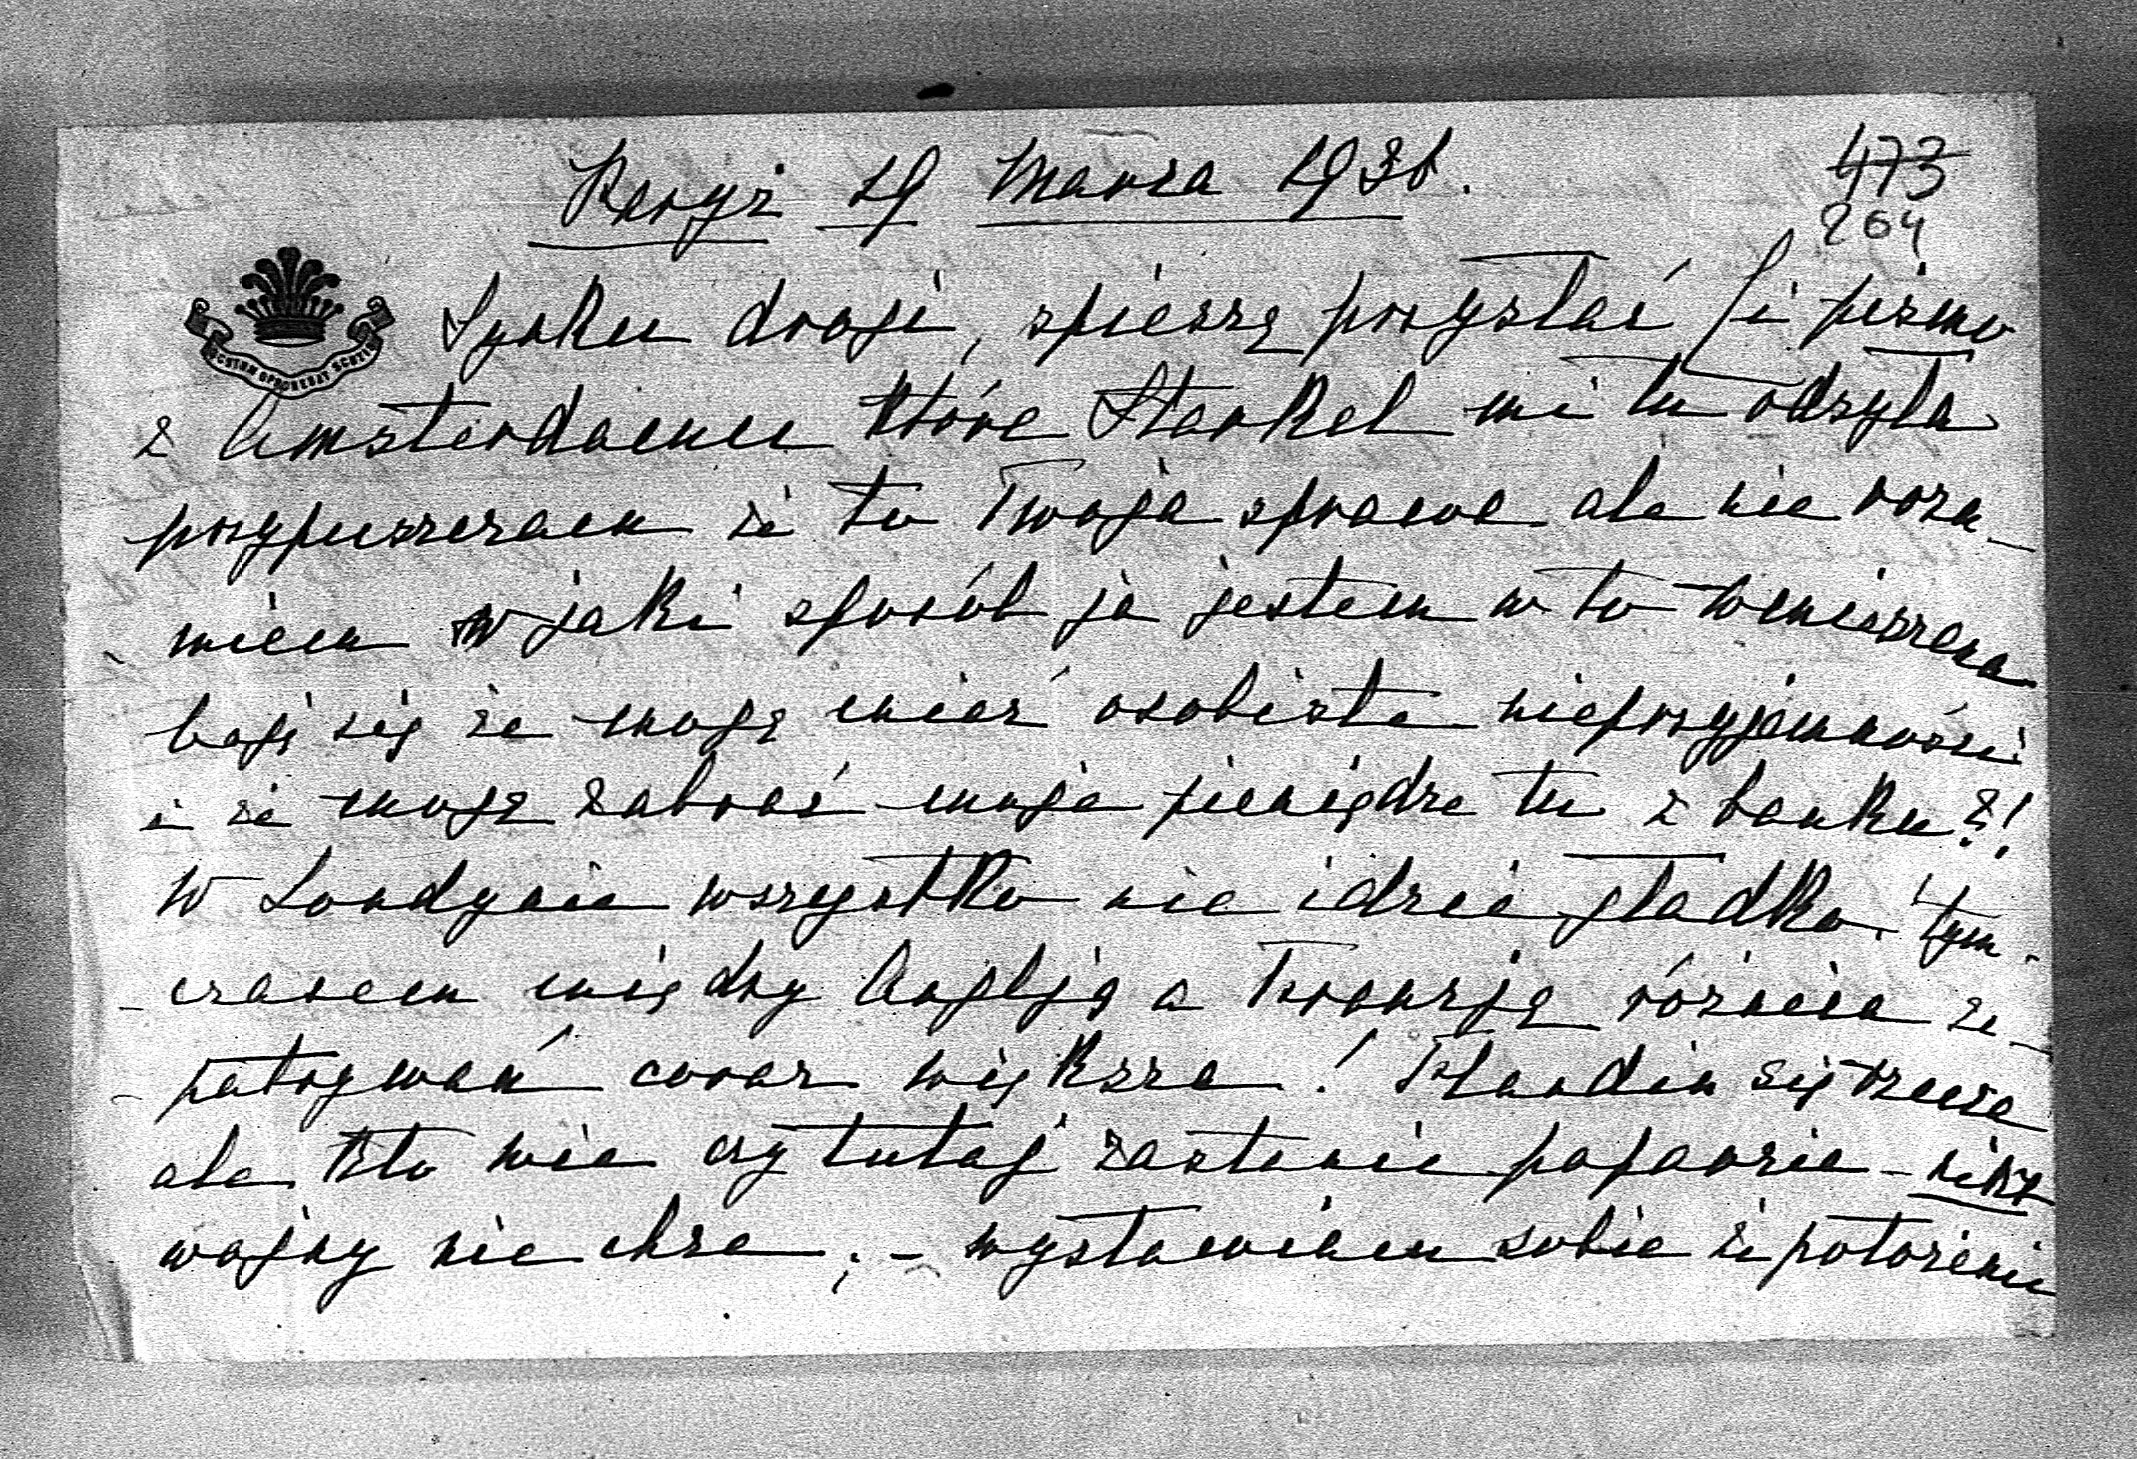 Paryż 19 Marca 1936.
473
264
SCUTUM OPPONEBAT SCUTIS
Synku drogi, spieszę przysłać Ci pismo
z Amsterdamu które Starkel mi tu odsyła
przypuszczam że to Twoja sprawa ale nie rozu-
miem w jaki sposób ja jestem w to wmieszana
boję się że mogę mieć osobiste nieprzyjemności
i że mogą zabrać moje pieniądze tu z banku?!
W Londynie wszystko nie idzie gładko. Tym-
-czasem między Anglją a Francją różnica za-
-patrywań coraz większa! Flandin się rzuca
ale kto wie czy tutaj zastanie poparcie - nikt
wojny nie chce; - wystawiam sobie że położenie